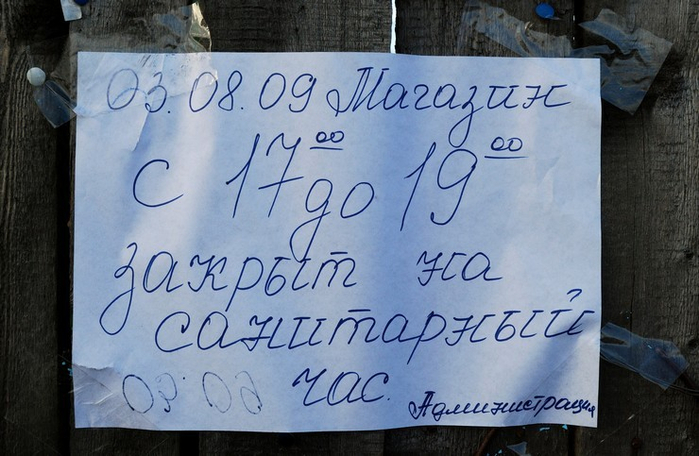 03.08.09 Магазин
с 17⁰⁰ до 19⁰⁰
закрыт на
санитарный
час.
Администрация